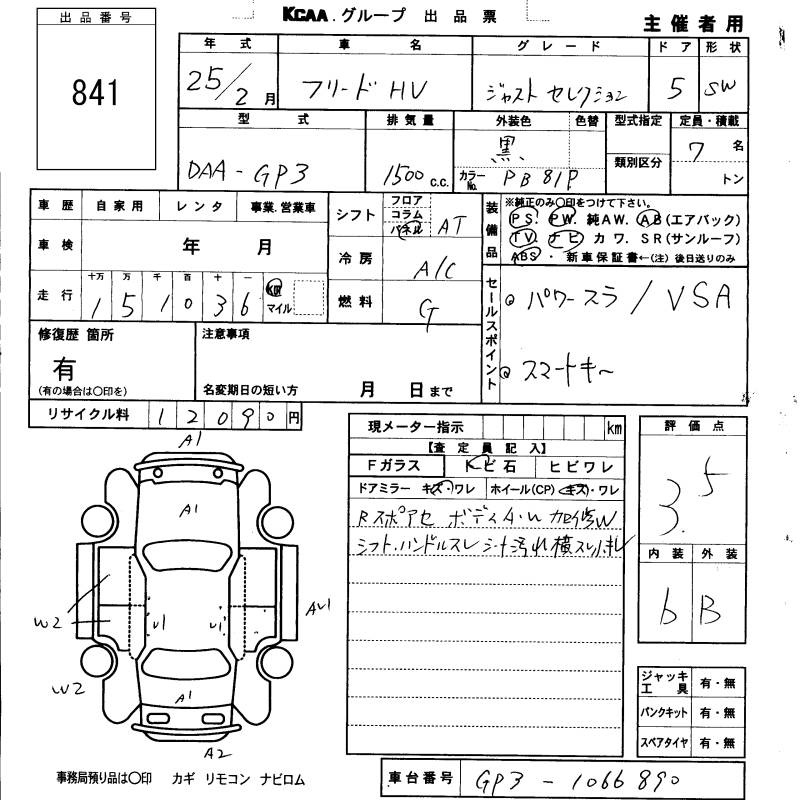 KCAA.グループ 出品票
主催者用
出品番号
841
年式 車名 グレード ドア 形状
25/2月 フリードHV ジャストセレクション 5 SW
型式 排気量 外装色 色替 型式指定 定員・積載
DAA-GP3 1500c.c. 黒 類別区分 7名
カラーNo. PB81P トン
車歴 自家用 レンタ 事業.営業車
車検 年 月
走行 十万 万 千 百 十 一
1 5 1 0 3 6 km マイル
シフト フロア コラム パネル AT
冷房 A/C
燃料 G
装備品
※純正のみ○印をつけて下さい。
PS. PW. 純AW. AB(エアバック)
TV. ナビ カワ. SR(サンルーフ)
ABS・新車保証書←(注)後日送りのみ
セールスポイント
◎ パワースラ / VSA
◎ スマートキー
修復歴 箇所
有
(有の場合は○印を)
注意事項
名変期日の短い方 月 日まで
リサイクル料 12090円
現メーター指示 km
【査定員記入】
Fガラス トビ石 ヒビワレ
ドアミラー キズ・ワレ ホイール(CP) キズ・ワレ
Rスポアセ ボディA・U 加修W
シフト.ハンドルスレ シート汚れ 横スレ
評価点
3.5
内装 外装
b B
ジャッキ工具 有・無
パンクキット 有・無
スペアタイヤ 有・無
A1
A1
W2
U1 U1
AU1
W2
A1
A2
事務局預り品は○印 カギ リモコン ナビロム
車台番号 GP3-1066890